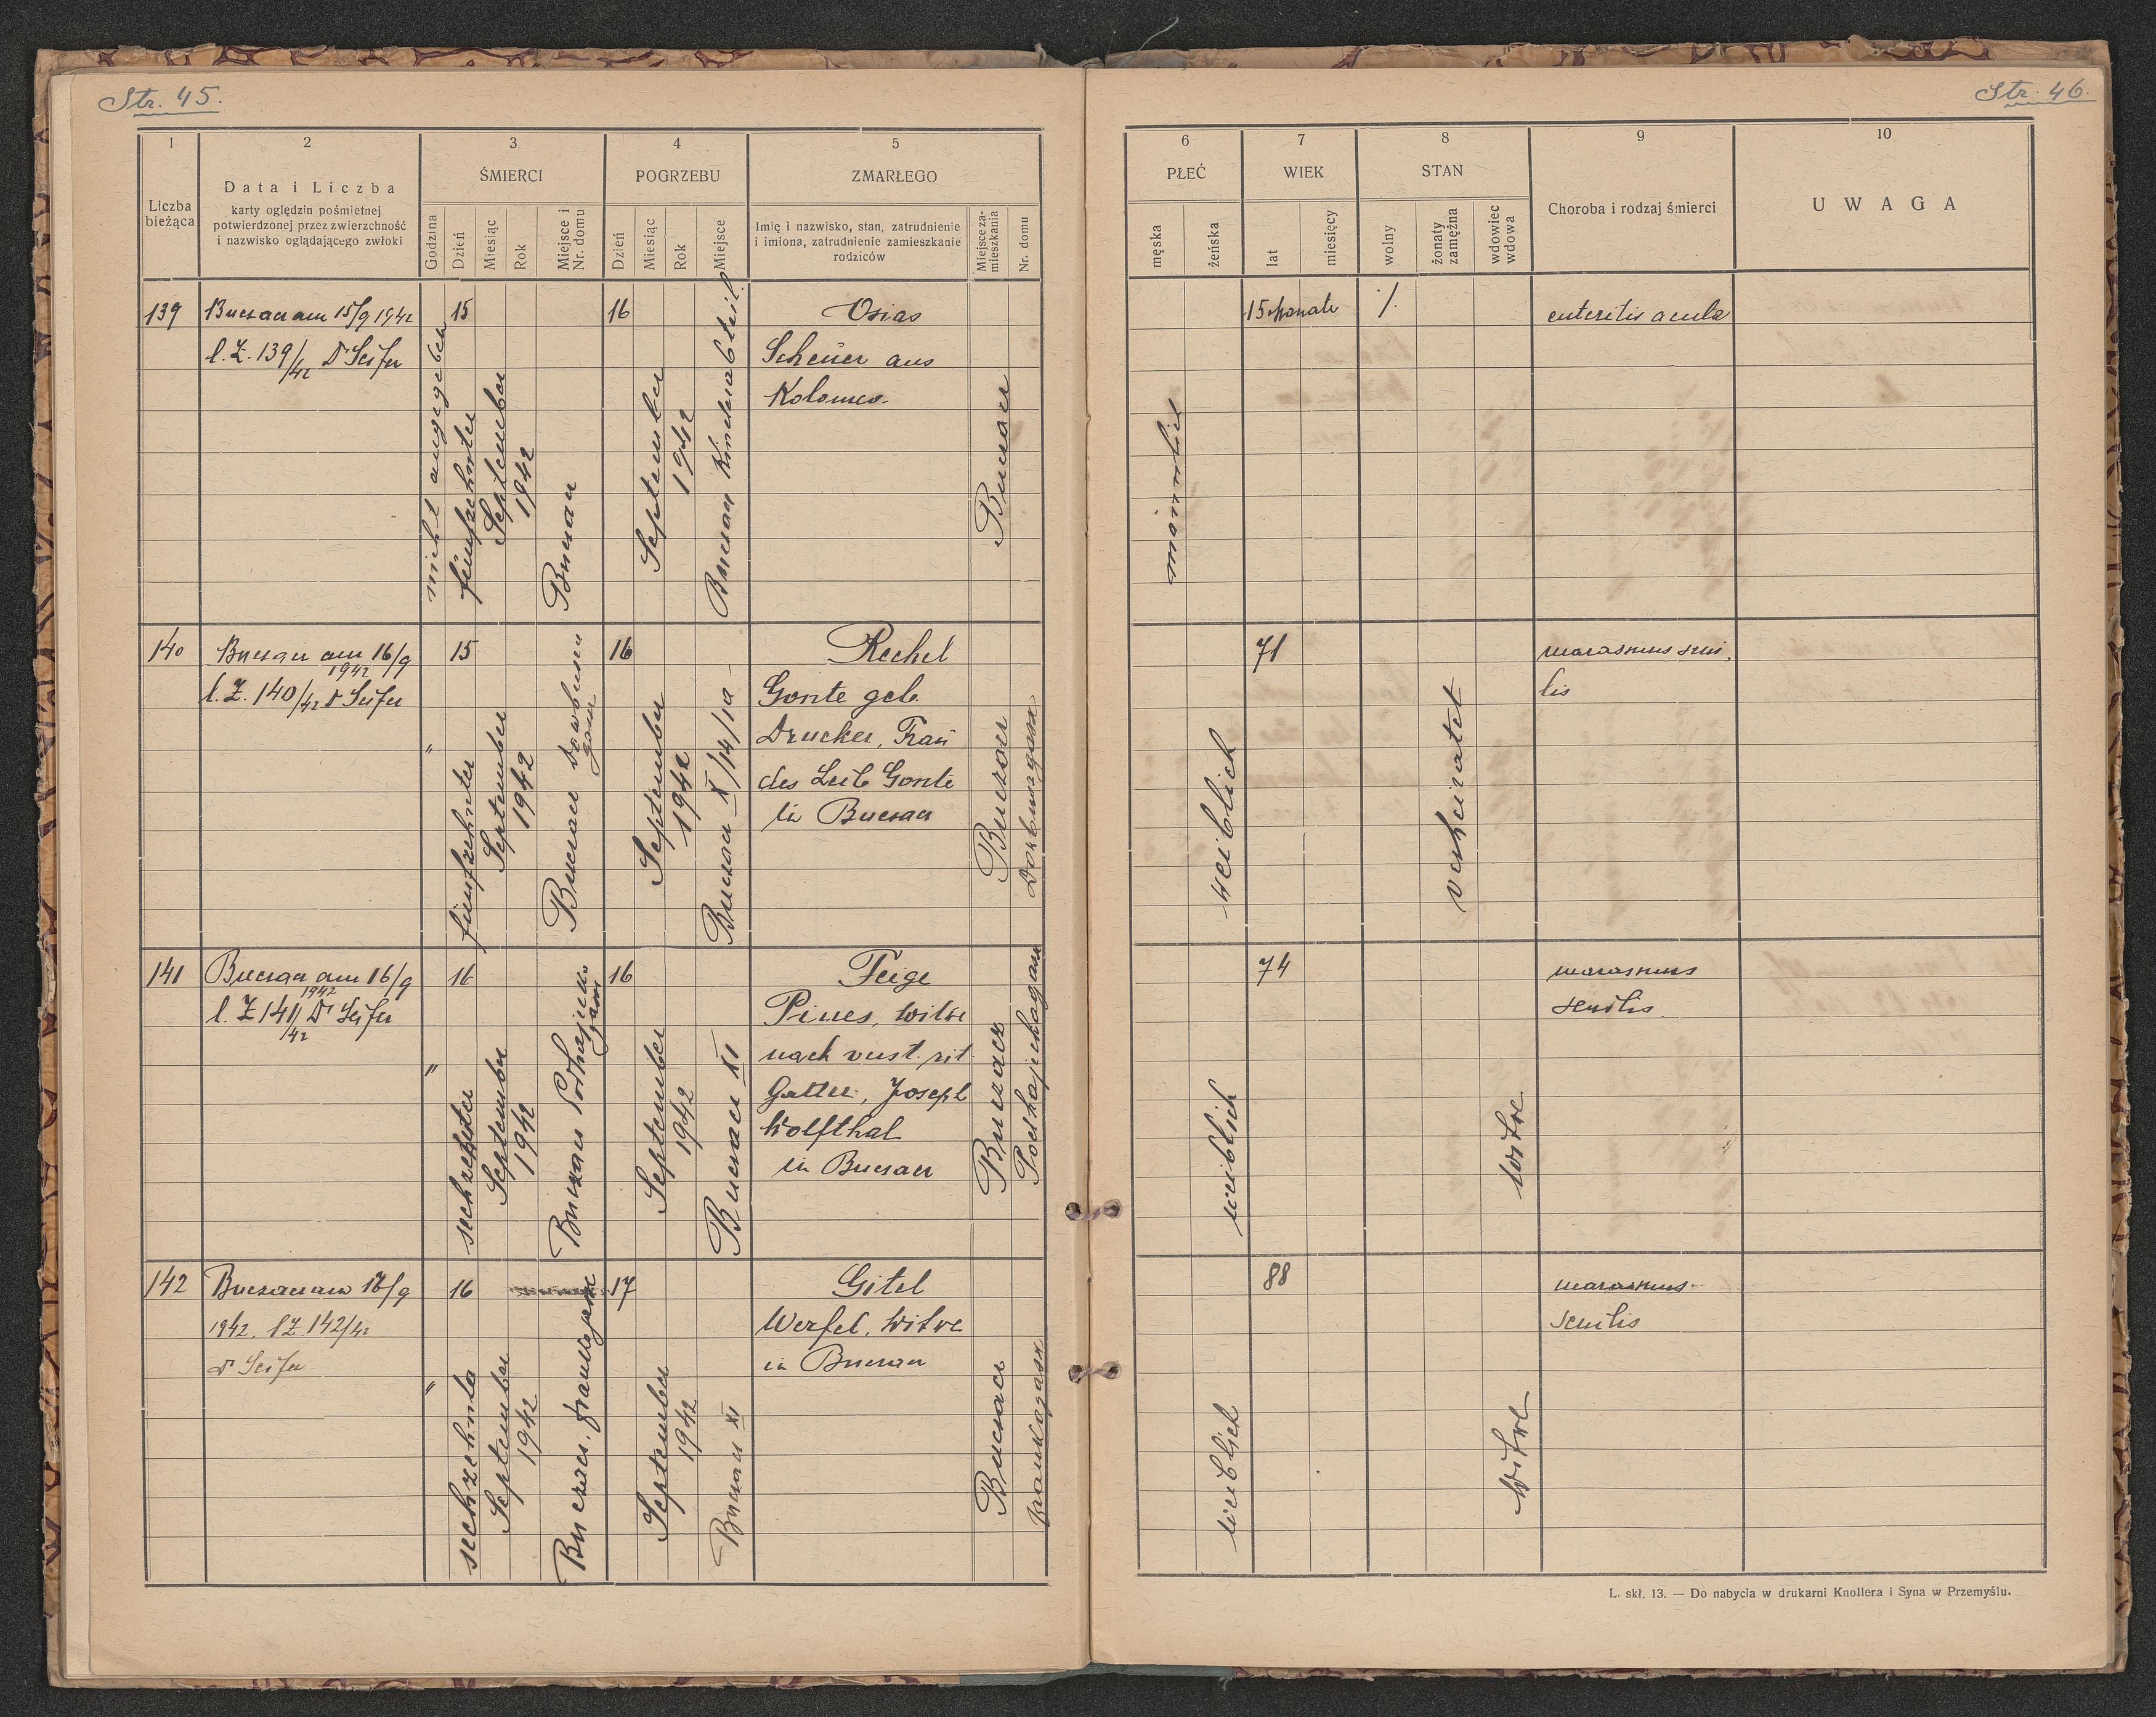 Str. 45.
1
2
3
4
5
Liczba
bieżąca
Data i Liczba
karty oględzin pośmietnej
potwierdzonej przez zwierzchność
i nazwisko oglądającego zwłoki
ŚMIERCI
Godzina
Dzień
Miesiąc
Rok
Miejsce i
Nr. domu
POGRZEBU
Dzień
Miesiąc
Rok
Miejsce
ZMARŁEGO
Imię i nazwisko, stan, zatrudnienie
i imiona, zatrudnienie zamieszkanie
rodziców
Miejsce za-
mieszkania
Nr. domu
139
Buczacz am 15/9 1942
l. Z. 139/42 Dr Seifer
nicht angegeben
15
fünfzehnter
September
1942
Buczacz
16
September
1942
Buczacz Kinderabteil
Osias
Scheuer aus
Kolomea
Buczacz
140
Buczacz am 16/9
1942
l. Z. 140/42 Dr Seifer
"
15
fünfzehnter
September
1942
Buczacz
gasse
16
September
1942
Buczacz X/14/10
Rechel
Gonte geb.
Drucker, Frau
des Leib Gonte
in Buczacz
Buczacz
141
Buczacz am 16/9
1942
l. Z 141/42 Dr Seifer
"
16
sechzehnter
September
1942
Buczacz Podhajecka
gasse
16
September
1942
Buczacz XI
Feige
Pines, Witwe
nach verst. rit.
Gatten, Joseph
Wolfthal
in Buczacz
Buczacz
Podhajeckagasse
142
Buczacz am 16/9
1942. l Z. 142/42
Dr Seifer
"
16
sechzehnter
September
1942
Buczacz
17
September
1942
Buczacz XI
Gitel
Werfel, Witwe
in Buczacz
Buczacz
Str. 46.
6
7
8
9
10
PŁEĆ
męska
żeńska
WIEK
lat
miesięcy
STAN
wolny
żonaty
zamężna
wdowiec
wdowa
Choroba i rodzaj śmierci
UWAGA
männlich
15 Monate
/.
enteritis acuta
weiblich
71
verheiratet
marasmus seni-
lis
weiblich
74
Witwe
marasmus
senilis.
weiblich
88
Witwe
marasmus
senilis
L. skł. 13. — Do nabycia w drukarni Knollera i Syna w Przemyślu.